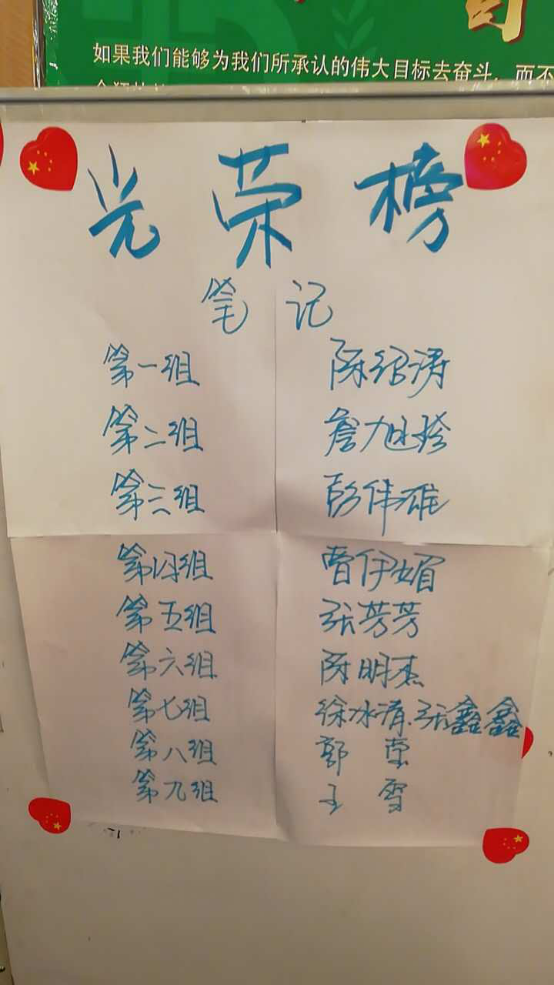 司
如果我们能够为我们所承认的伟大目标去奋斗，而不
光荣榜
笔记
第一组 陈绍涛
第二组 詹旭珍
第三组 彭伟雄
第四组 曹伊媚
第五组 张芳芳
第六组 陈明杰
第七组 徐冰清.张鑫鑫
第八组 郭荣
第九组 王雪